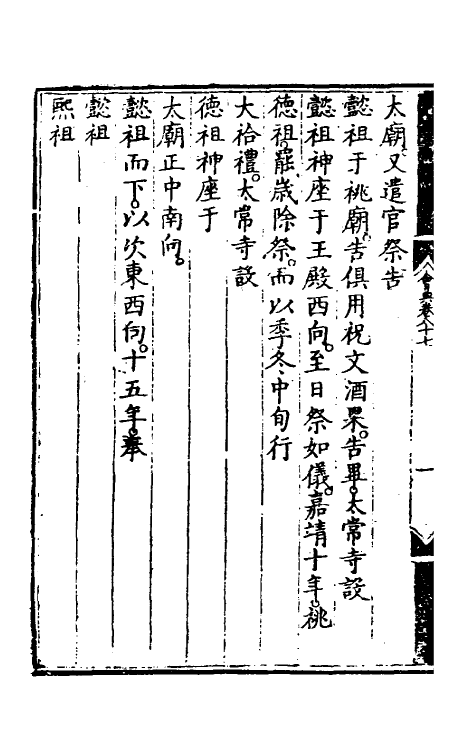 會典卷八十七
一
太廟。又遣官祭告
懿祖于祧廟。告俱用祝文酒果。告畢。太常寺設
懿祖神座于王殿西向。至日祭如儀。嘉靖十年。祧
德祖。罷歲除祭。而以季冬中旬行
大祫禮。太常寺設
德祖神座于
太廟正中南向。
懿祖而下。以次東西向。十五年。奉
懿祖
熙祖